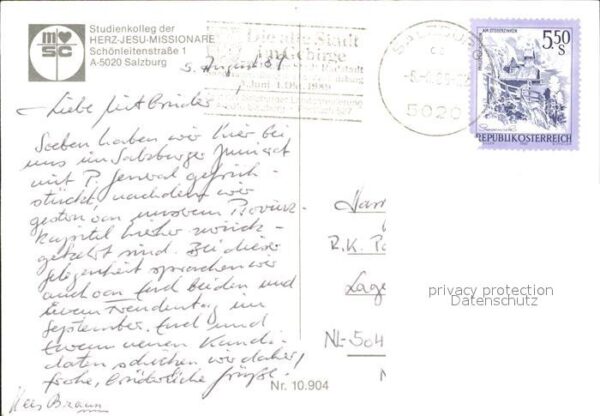 Studienkolleg der
HERZ-JESU-MISSIONARE
Schönleitenstraße 1
A-5020 Salzburg
MSC
5. August 89
Die alte Stadt
im Gebirge
SALZBURG
5020
5,50 S
REPUBLIK ÖSTERREICH
Liebe Mitbrüder,
Soeben haben wir hier bei
uns im Salzburger Juniorat
mit P. General gefrüh-
stückt, nachdem wir
gestern von unserem Provinz-
kapitel hieher zurück-
gekehrt sind. Bei dieser
Gelegenheit sprachen wir
auch von Euch beiden und
Eurem Freudentag im
September. Euch und
Eurem neuen Kandi-
daten schicken wir daher,
frohe, brüderliche Grüße!
Hans Braun
R.K. Pa
Lage
NL-504
N
privacy protection
Datenschutz
Nr. 10.904